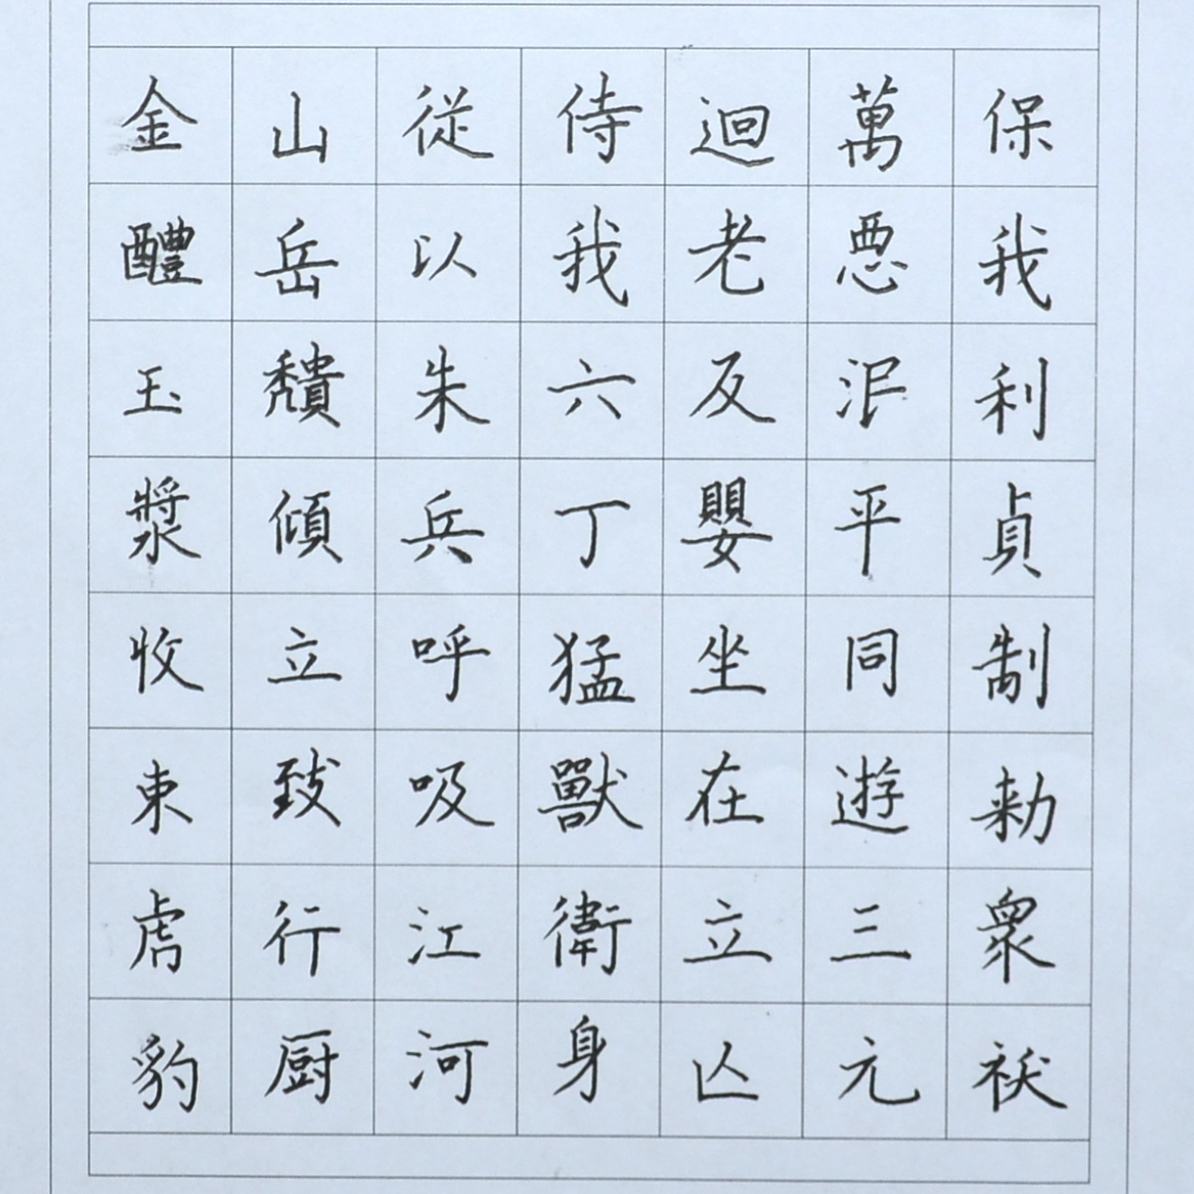 保我利貞制勑衆祅
萬悪泯平同遊三元
迴老反嬰坐在立亾
侍我六丁猛獸衛身
從以朱兵呼吸江河
山岳穨傾立致行厨
金醴玉漿收束虎豹